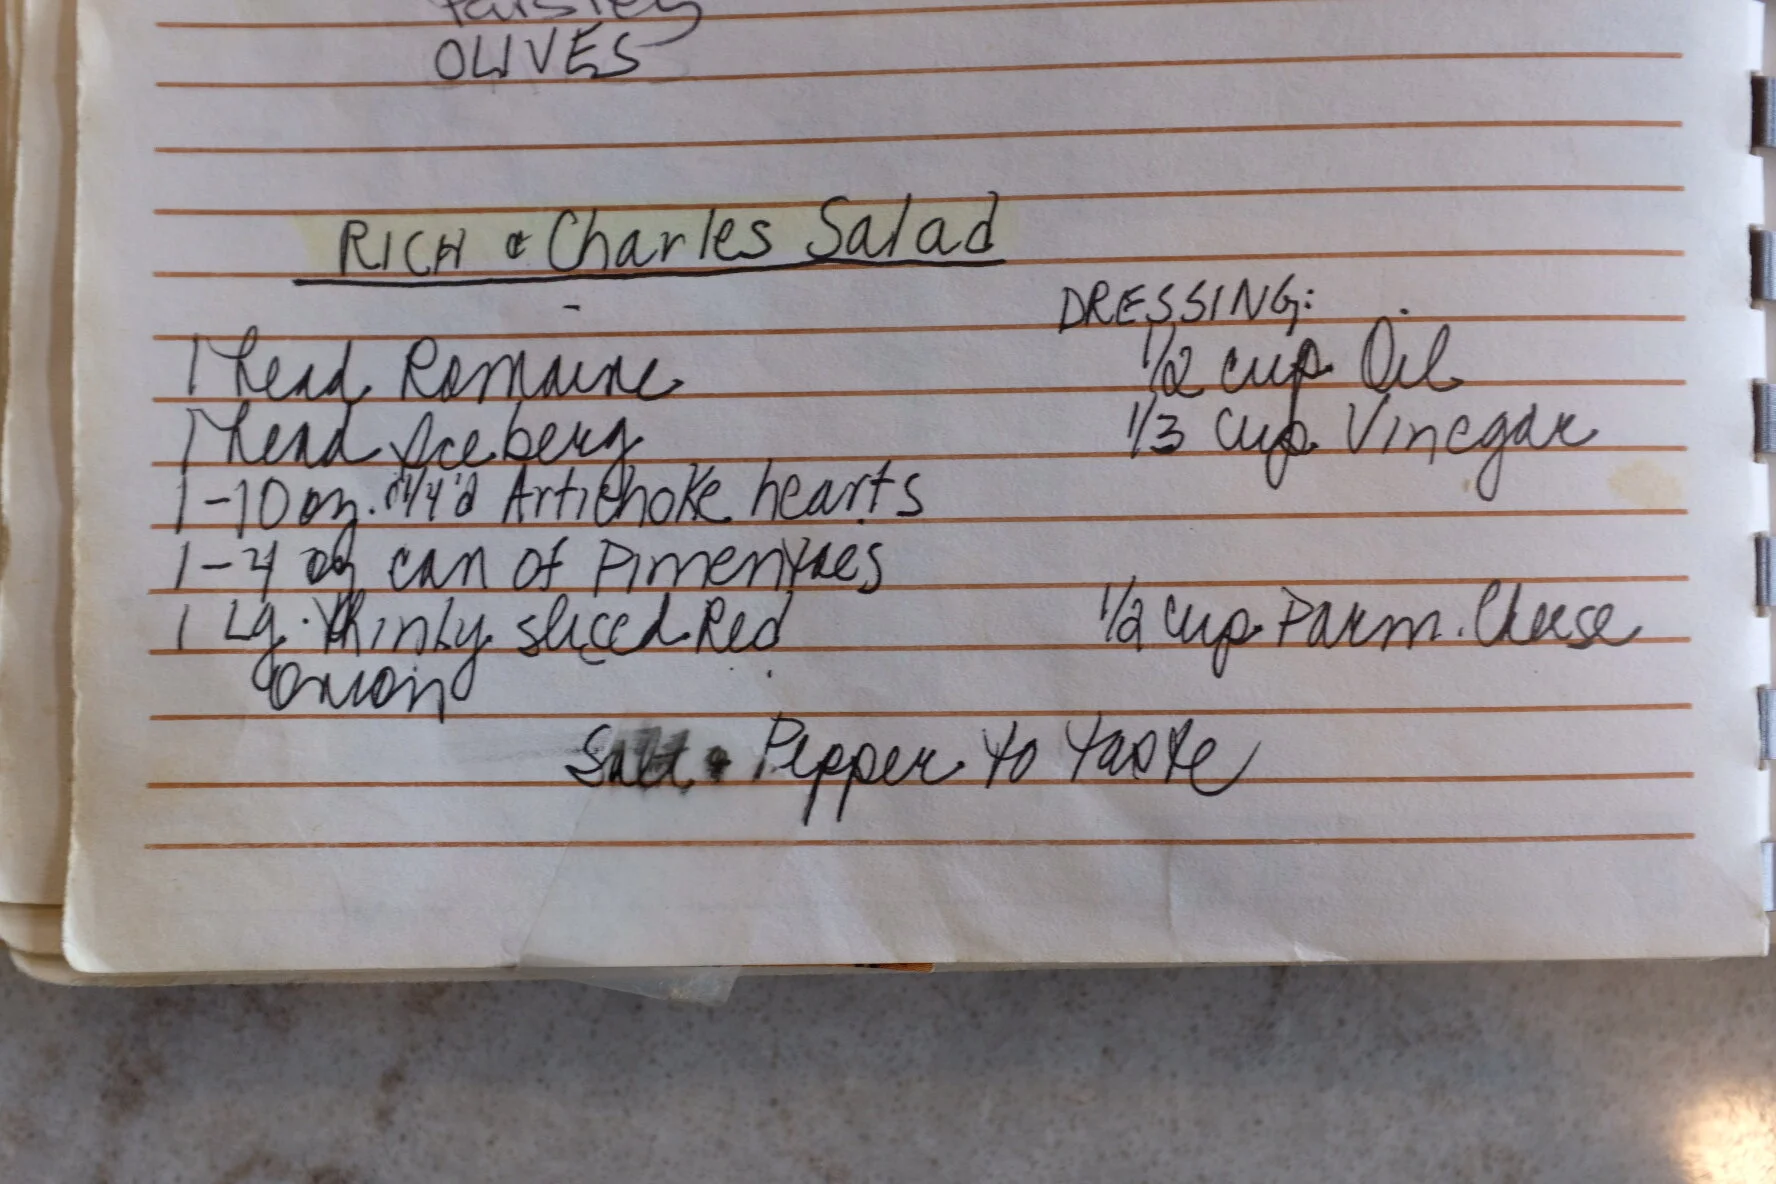 Parsley
OLIVES
RICH & Charles Salad
DRESSING:
1 head Romaine
1/2 cup Oil
1 head Iceberg
1/3 cup Vinegar
1-10 oz. 1/4'd Artichoke hearts
1-4 oz can of Pimentoes
1 Lg. thinly sliced Red
Onion
1/2 cup Parm. Cheese
Salt & Pepper to taste